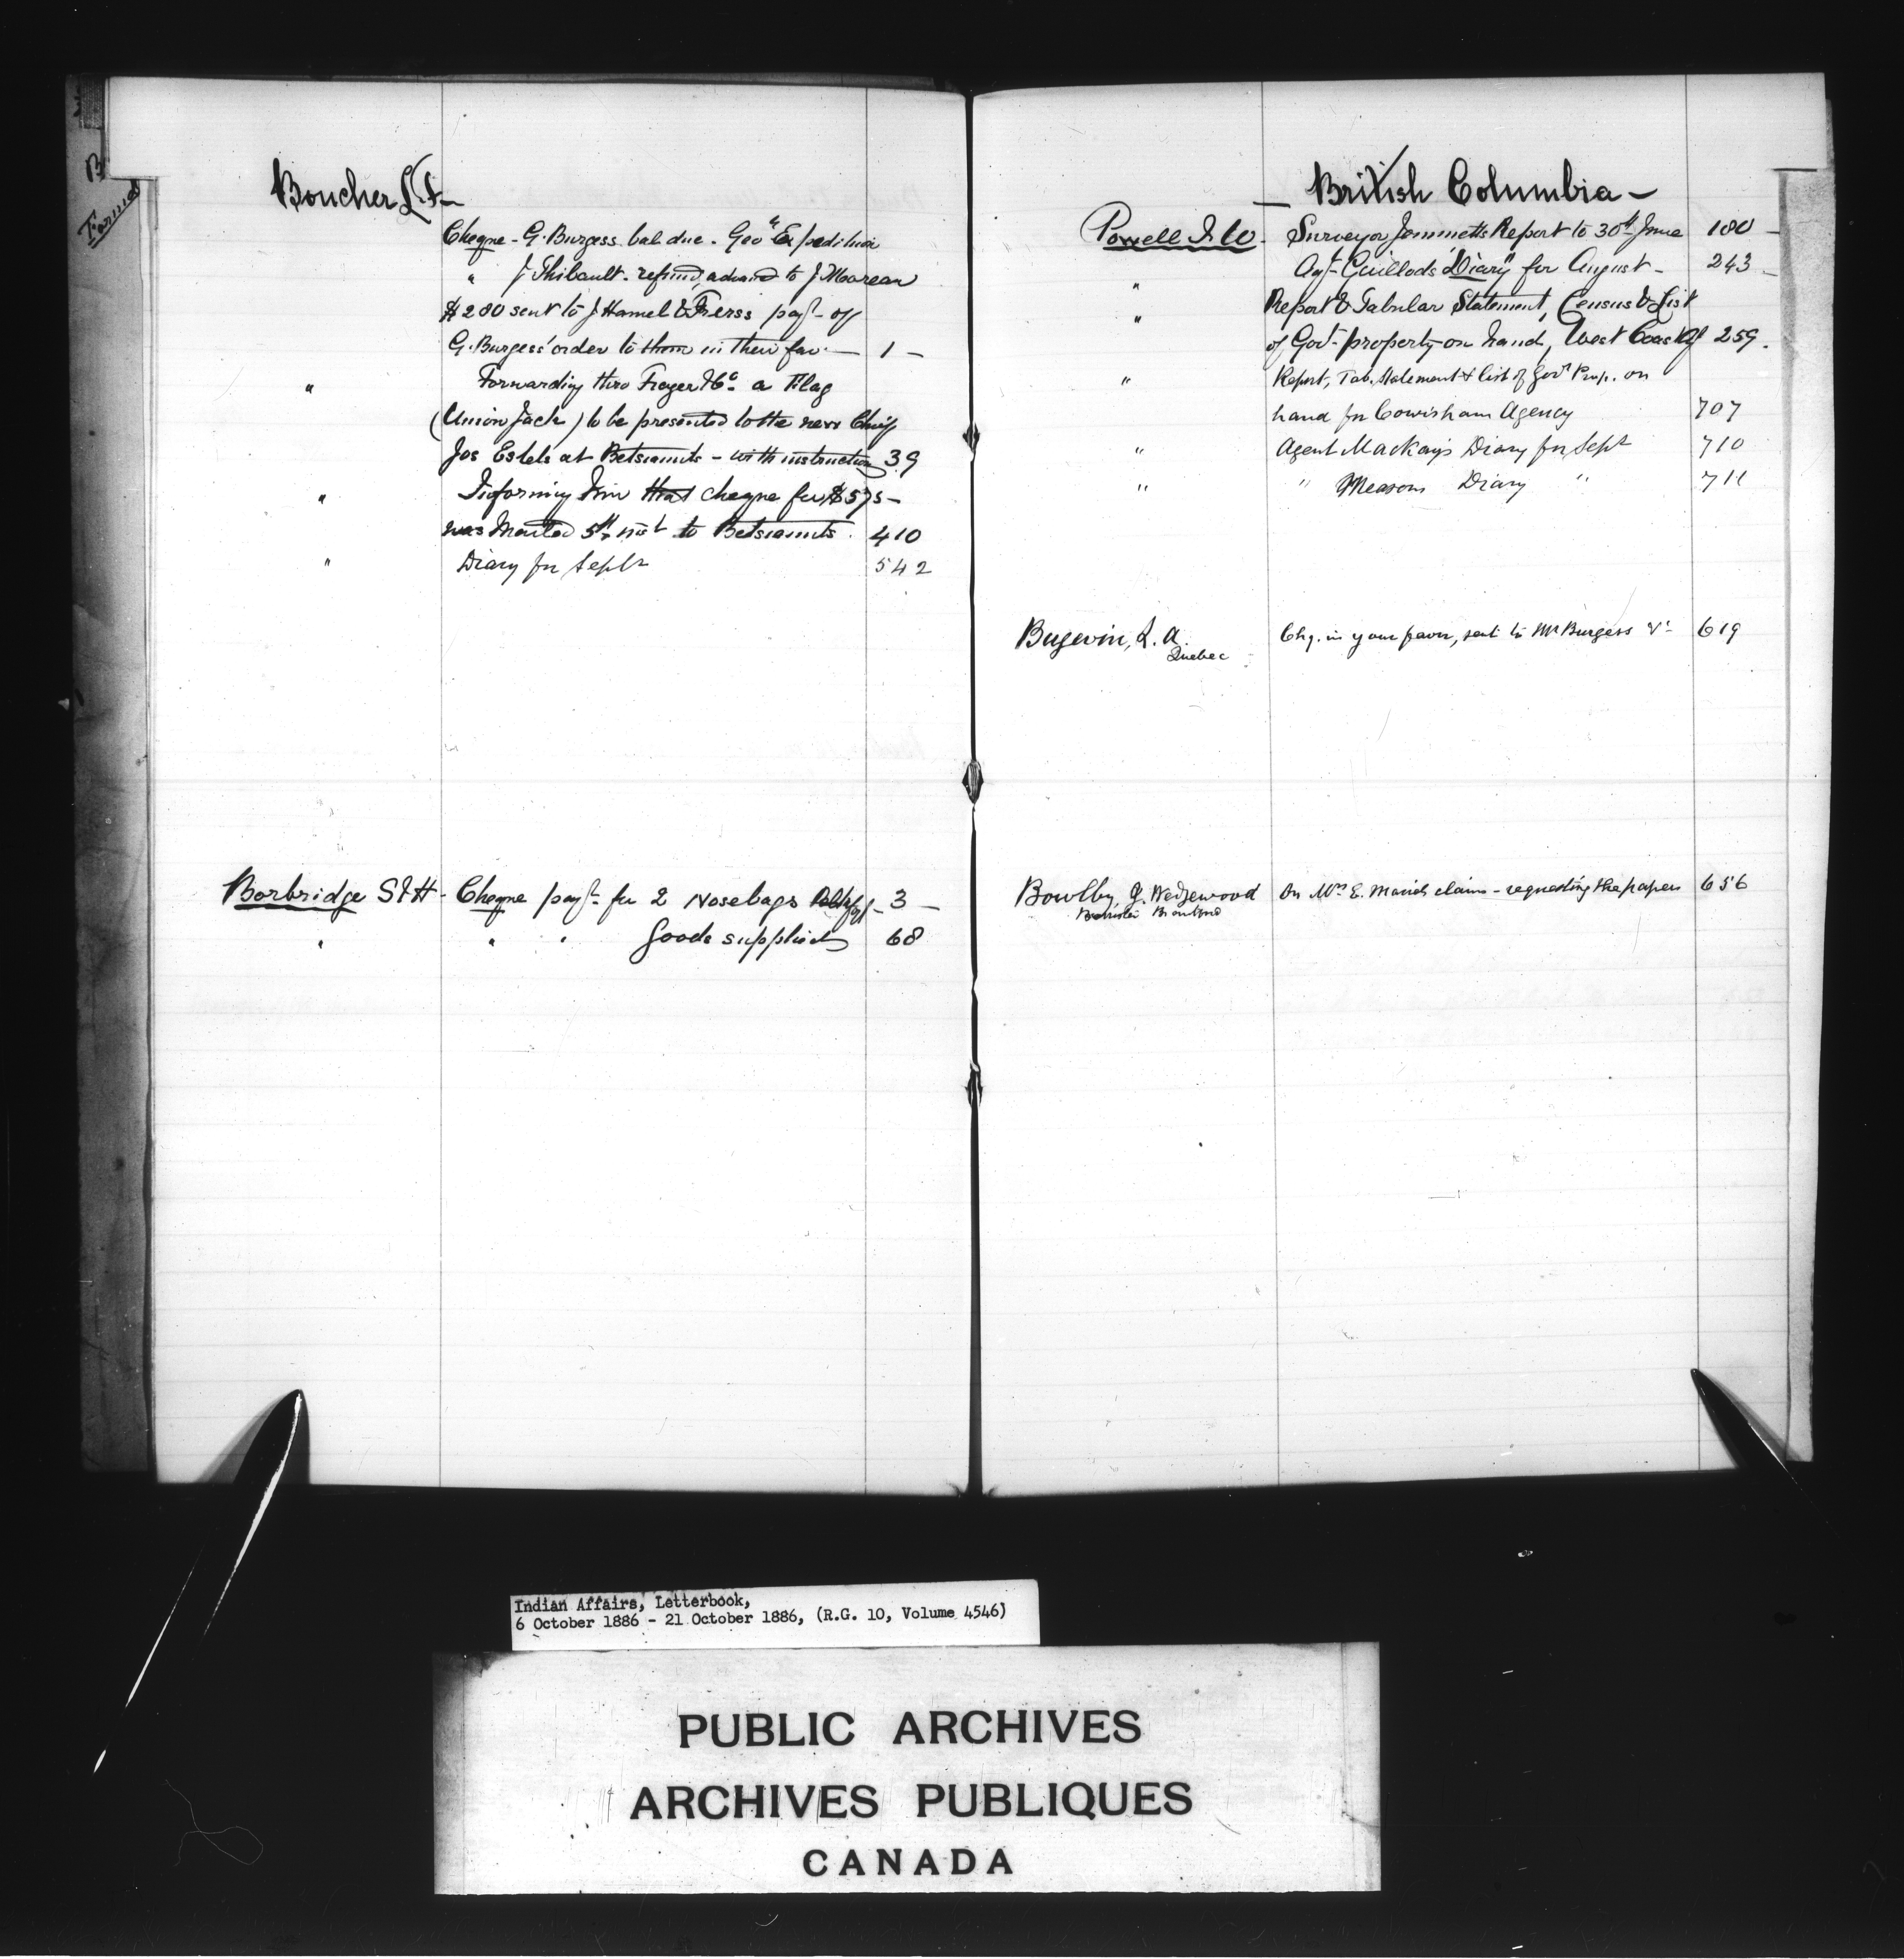 B
Boucher L. F.
Cheque - G. Burgess. bal due. Geo^l Expedition
" J Thibault. refund, advanced to J Moareau
$280 sent to J Hamel & Freres pay^t of
G. Burgess' order to them in their fav. — 1 —
" Forwarding thro Fraser & Co a Flag
(Union Jack) to be presented to the new Chief
Jos Estels at Betsiamits - with instruction 39
" Informing him that cheque for $575 —
was mailed 5th inst to Betsiamits. 410
" Diary for Septr 542
Borbridge S & H - Cheque pay^t for 2 Nosebags - 3 —
" " " Goods supplied 68
— British Columbia —
Powell I. W. - Surveyor Jemmetts Report to 30th June 180 —
" Agt Guillods "Diary" for August - 243 —
" Report & Tabular Statement, Census & List
of Govt property on hand, West Coast Ag 259.
" Report, Tab. Statement & list of Govt Prop. on
hand for Cowichan Agency 707
" Agent Mackay's Diary for Sept 710
" " Meason Diary " 711
L. A. Chq. in your favor, sent to Mr Burgess 619
Quebec
Bowlby, J. Wedgewood On Mrs E. claim - requesting the papers 656
Barrister Brantford
Indian Affairs, Letterbook,
6 October 1886 - 21 October 1886, (R.G. 10, Volume 4546)
PUBLIC ARCHIVES
ARCHIVES PUBLIQUES
CANADA